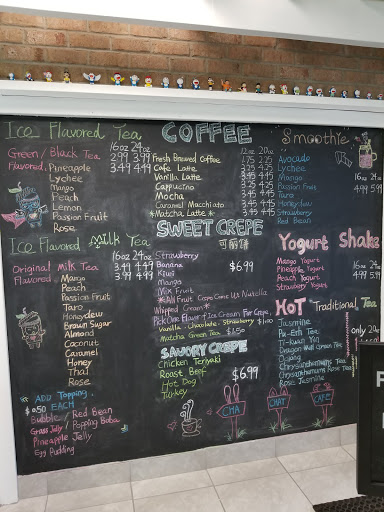 Ice Flavored Tea
16oz 24oz
Green / Black Tea 2.99 3.99
Flavored Pineapple 3.49 4.49
Lychee
Mango
Peach
Lemon
Passion Fruit
Rose
Ice Flavored Milk Tea
16oz 24oz
Original Milk Tea 3.49 4.49
Flavored Mango 3.99 4.99
Peach
Passion Fruit
Taro
Honeydew
Brown Sugar
Almond
Coconut
Caramel
Honey
Thai
Rose
* ADD Topping
$0.50 EACH
Bubble / Red Bean
Grass Jelly / Popping Boba
Pineapple Jelly
Egg Pudding
COFFEE
12oz 20oz
Fresh Brewed Coffee 1.75 2.25
Cafe Latte
Vanilla Latte
Cappucino
Mocha
Caramel Macchiato 3.45 4.45
*Matcha Latte* 3.45 4.45
SWEET CREPE
可丽饼
Strawberry
Banana
Kiwi
Mango
Mix Fruit
$6.99
*All Fruit Crepe Come W/ Nutella
Whipped Cream*
Pick One Flavor Ice Cream For Crepe
Vanilla - Chocolate - Strawberry $1.00
Matcha Green Tea $1.50
SAVORY CREPE
Chicken Teriyaki
Roast Beef
Hot Dog
Turkey
$6.99
CHA
CHAT
CAFE
Smoothie
Avocado
Lychee
Mango
Passion Fruit
Taro
Honeydew
Strawberry
Red Bean
16oz 24oz
4.99 5.99
Yogurt Shake
Mango Yogurt
Pineapple Yogurt
Peach Yogurt
Strawberry Yogurt
16oz 24oz
4.99 5.99
HOT Traditional Tea
Jasmine
Pu-Erh Tea
Ti-Kuan Yin
Dragon Well Green Tea
Oolong
Chrysanthemums Tea
Chrysanthemums Rose Tea
Rose Jasmine
only 20oz